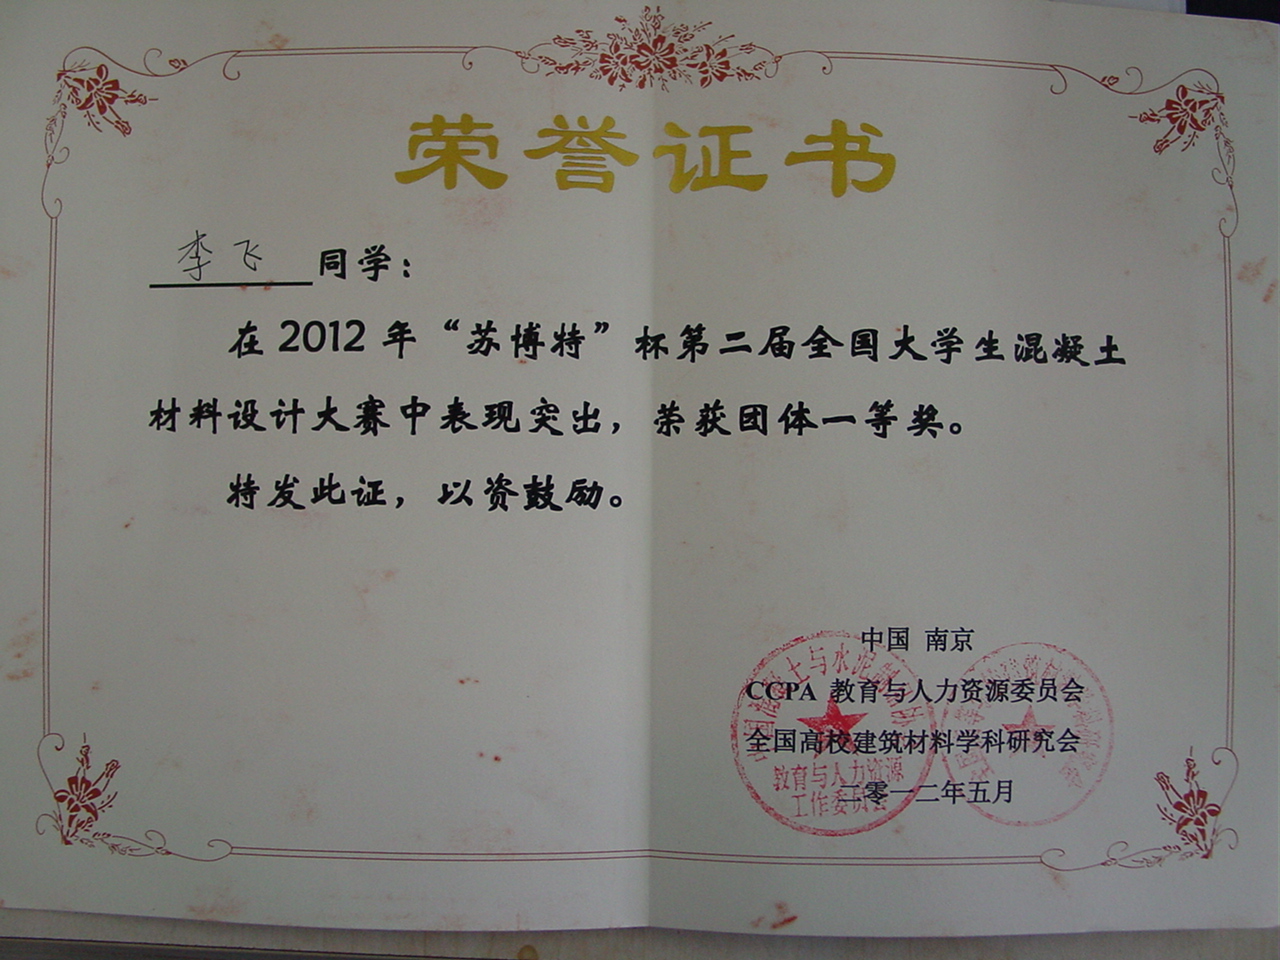 荣誉证书
李飞 同学：
在2012年“苏博特”杯第二届全国大学生混凝土
材料设计大赛中表现突出，荣获团体一等奖。
特发此证，以资鼓励。
中国 南京
CCPA 教育与人力资源委员会
全国高校建筑材料学科研究会
二零一二年五月
教育与人力资源
工作委员会